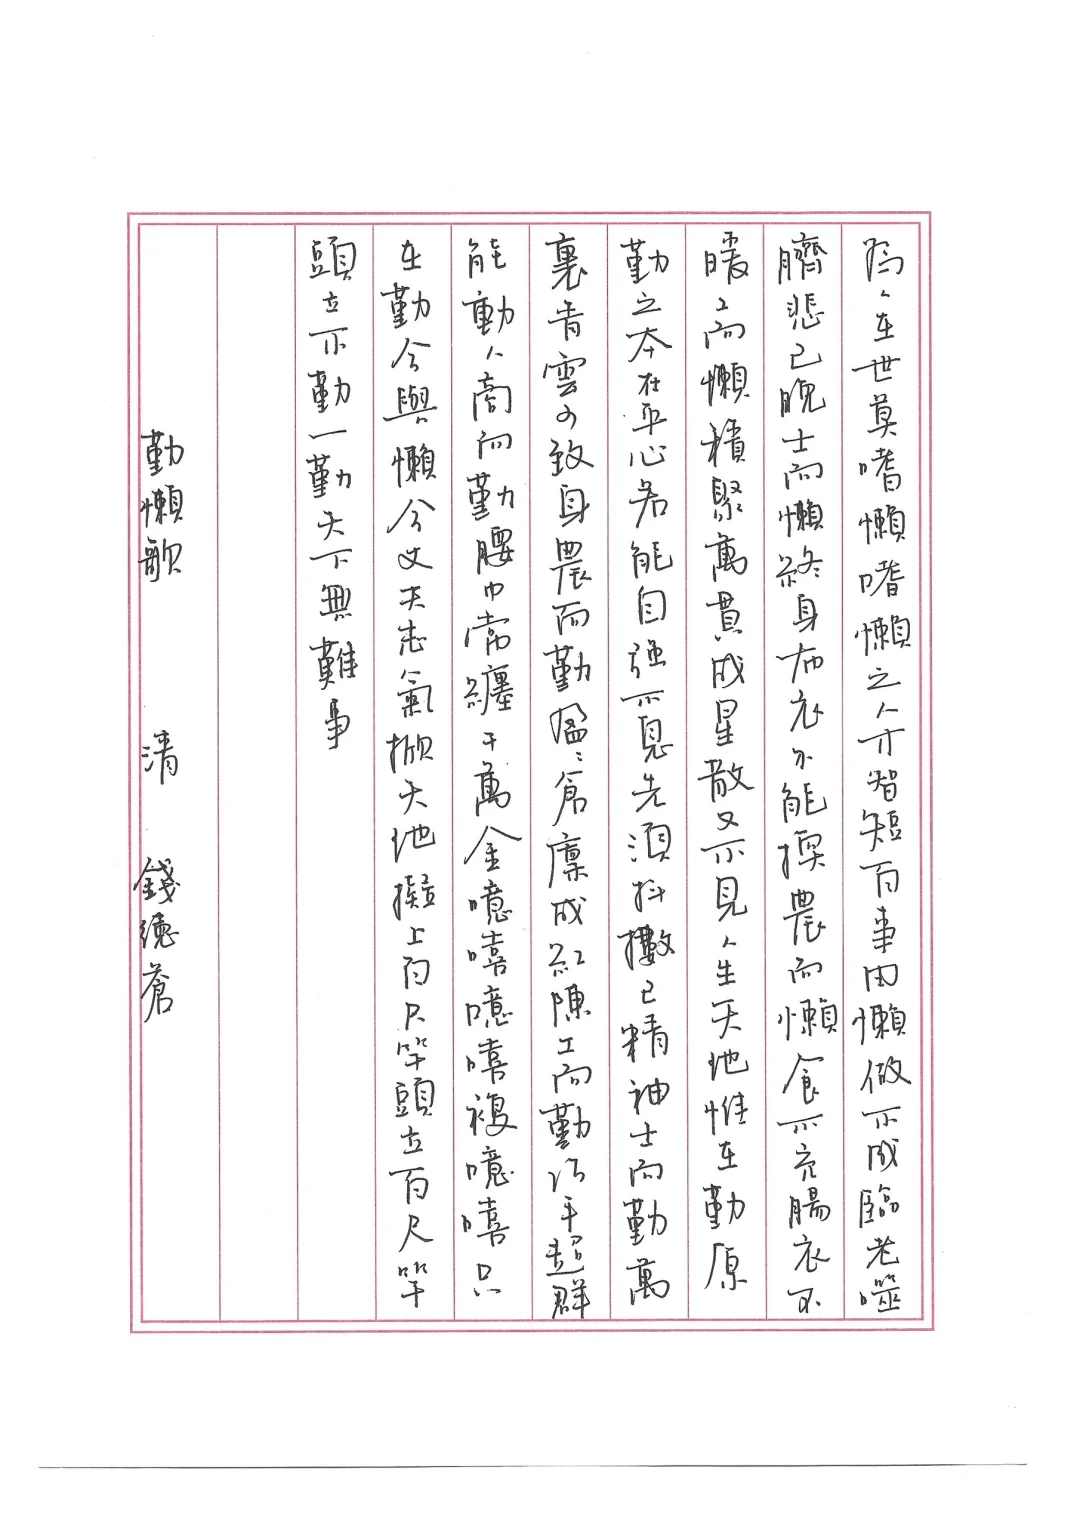 為人在世莫嗜懶嗜懶之人才智短百事由懶做不成臨老噬
臍悲已晚士而懶終身布衣不能換農而懶食不充腸衣不
暖工而懶積聚萬貫成星散又不見人生天地惟在勤原
勤之本在平心若能自強不息先須抖擻已精神士而勤萬
裏青雲可致身農而勤盈盈倉廩成紅陳工而勤巧手超群
能動人商而勤腰中常纏千萬金噫嘻噫嘻複噫嘻只
在勤兮與懶兮丈夫志氣掀天地擬上百尺竿頭立百尺竿
頭立不勤一勤天下無難事
勤懶歌 清 錢德蒼